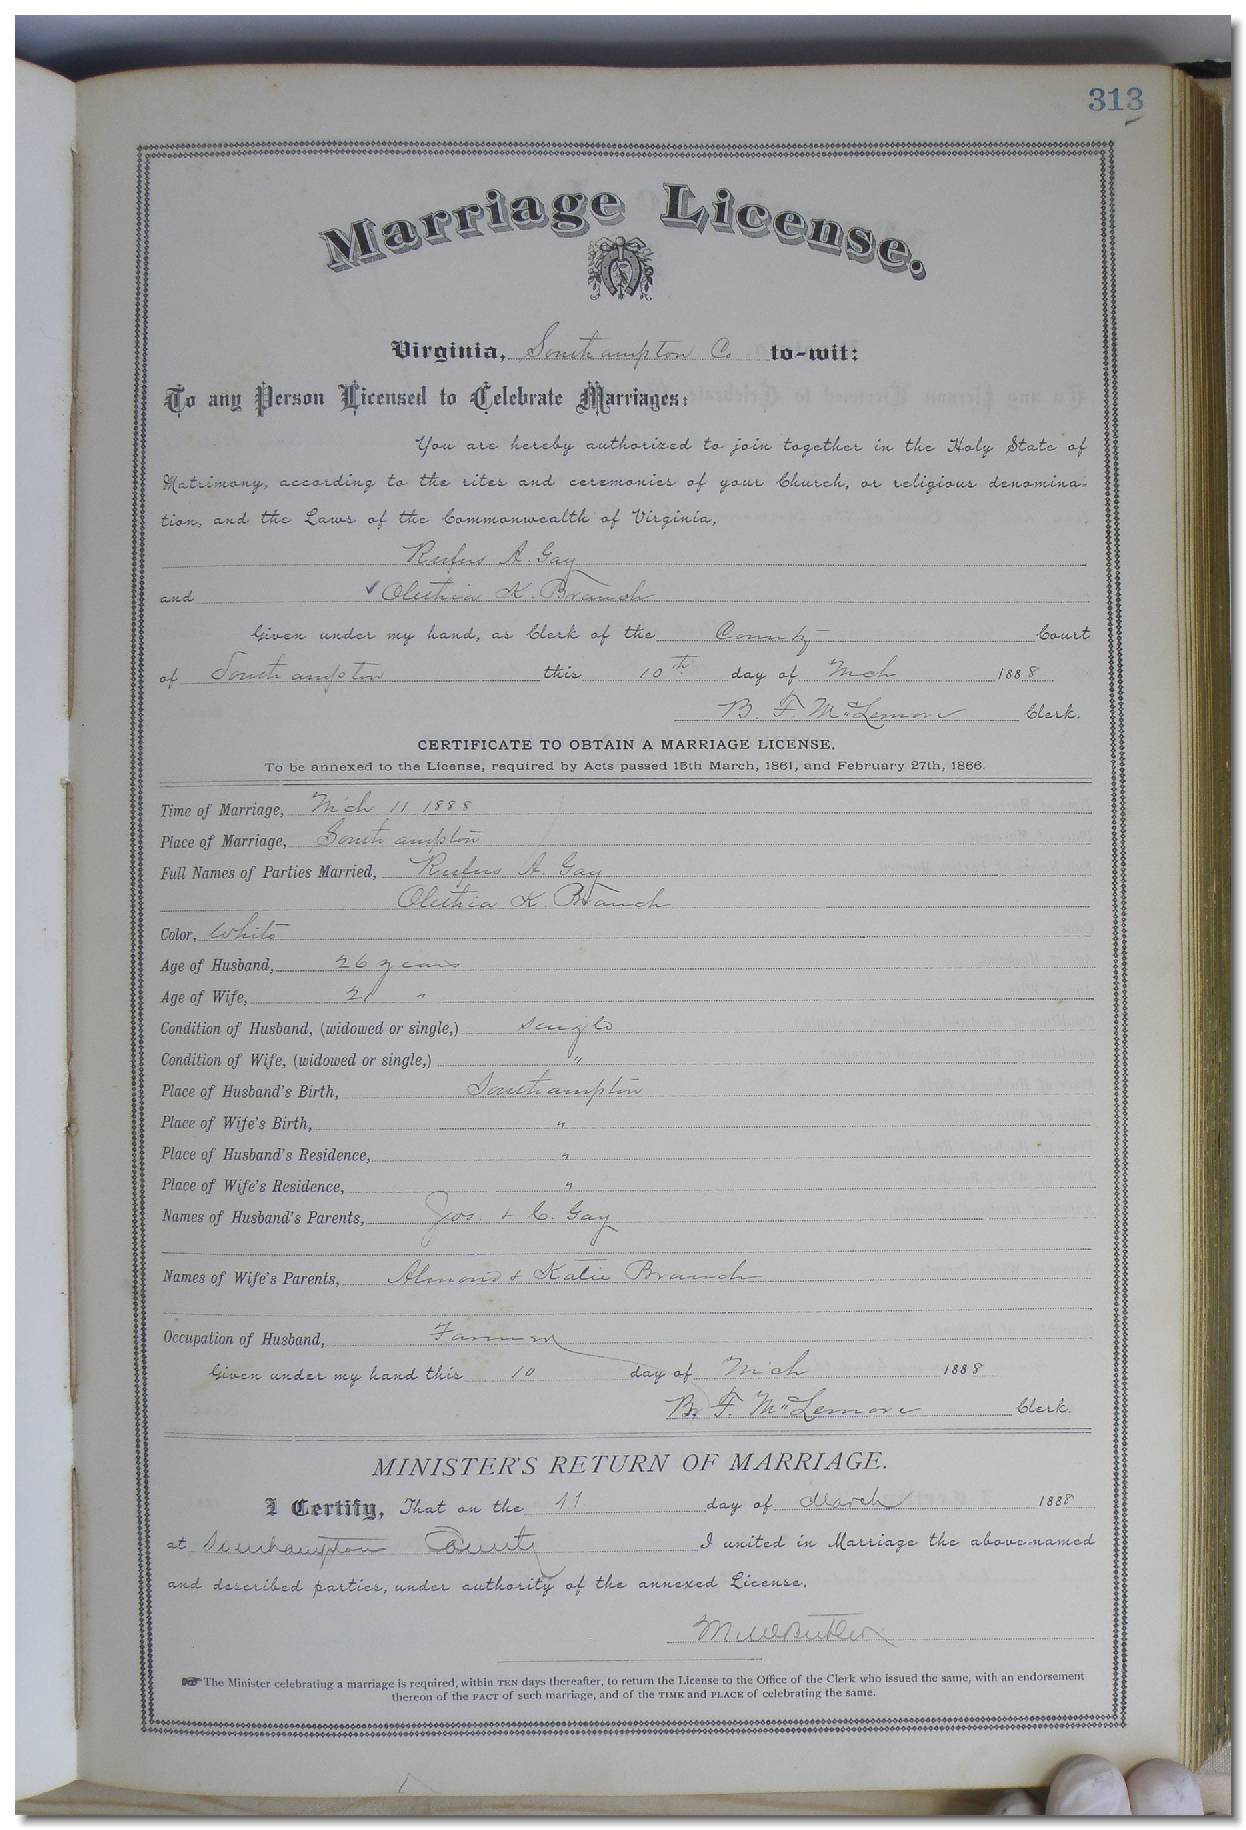 313
Marriage License.
Virginia, Southampton Co to-wit:
To any Person Licensed to Celebrate Marriages:
You are hereby authorized to join together in the Holy State of
Matrimony, according to the rites and ceremonies of your Church, or religious denomina-
tion, and the Laws of the Commonwealth of Virginia,
Rufus A. Gay
and Olethia K. Branch
Given under my hand, as Clerk of the County Court
of Southampton this 10th day of Mch 1888
B. F. McLemore Clerk.
CERTIFICATE TO OBTAIN A MARRIAGE LICENSE.
To be annexed to the License, required by Acts passed 15th March, 1861, and February 27th, 1866.
Time of Marriage, Mch 11 1888
Place of Marriage, Southampton
Full Names of Parties Married, Rufus A. Gay
Olethia K. Branch
Color, White
Age of Husband, 26 years
Age of Wife, 21 "
Condition of Husband, (widowed or single,) Single
Condition of Wife, (widowed or single,) "
Place of Husband's Birth, Southampton
Place of Wife's Birth, "
Place of Husband's Residence, "
Place of Wife's Residence, "
Names of Husband's Parents, Jos. & C. Gay
Names of Wife's Parents, Almond & Katie Branch
Occupation of Husband, Farmer
Given under my hand this 10 day of Mch 1888
B. F. McLemore Clerk.
MINISTER'S RETURN OF MARRIAGE.
I Certify, That on the 11 day of March 1888
at Southampton County I united in Marriage the above-named
and described parties, under authority of the annexed License.
Butler
☞ The Minister celebrating a marriage is required, within TEN days thereafter, to return the License to the Office of the Clerk who issued the same, with an endorsement
thereon of the FACT of such marriage, and of the TIME and PLACE of celebrating the same.